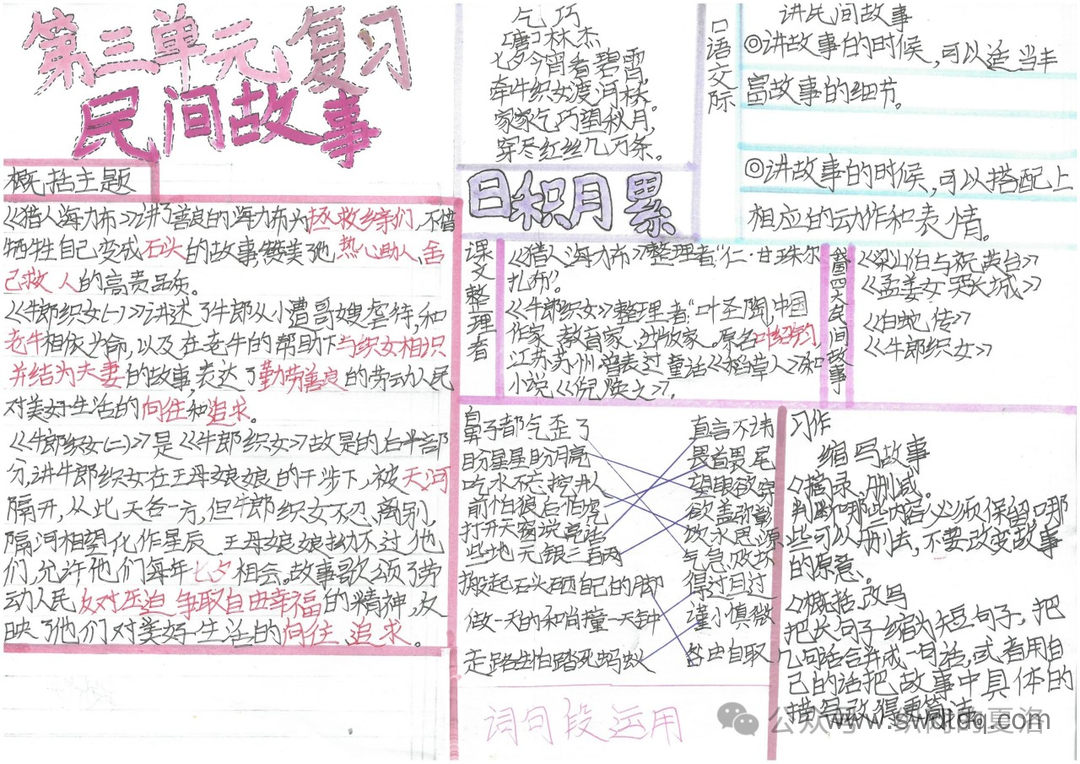 第三单元复习
民间故事
概括主题
《猎人海力布》讲了善良的海力布为拯救乡亲们,不惜
牺牲自己变成石头的故事,赞美了他热心助人、舍
己救人的高贵品质。
《牛郎织女(一)》讲述了牛郎从小遭哥嫂虐待,和
老牛相依为命,以及在老牛的帮助下与织女相识
并结为夫妻的故事,表达了勤劳善良的劳动人民
对美好生活的向往和追求。
《牛郎织女(二)》是《牛郎织女》故是的后半部
分,讲牛郎织女在王母娘娘的干涉下,被天河
隔开,从此天各一方,但牛郎织女不忍离别,
隔河相望化作星辰,王母娘娘拗不过他
们,允许他们每年七夕相会。故事歌颂了劳
动人民反对压迫 争取自由幸福的精神,反
映了他们对美好生活的向往、追求。
乞巧
[唐]林杰
七夕今宵看碧霄,
牵牛织女渡河桥。
家家乞巧望秋月,
穿尽红丝几万条。
日积月累
口语交际
讲民间故事
◎讲故事的时候,可以适当丰
富故事的细节。
◎讲故事的时候,可以搭配上
相应的动作和表情。
课文整理者
《猎人海力布》整理者:仁·甘珠尔
扎布。
《牛郎织女》整理者:叶圣陶,中国
作家、教育家、出版家。原名叶绍钧,
江苏苏州,曾表过童话《稻草人》和
小说《倪焕之》。
四大民间故事
《梁山伯与祝英台》
《孟姜女哭长城》
《白蛇传》
《牛郎织女》
鼻子都气歪了
盼星星盼月亮
吃水不忘挖井人
前怕狼后怕虎
打开天窗说亮话
此地无银三百两
搬起石头砸自己的脚
做一天的和尚撞一天钟
走路生怕踏死蚂蚁
直言不讳
畏首畏尾
望眼欲穿
欲盖弥彰
饮水思源
气急败坏
得过且过
谨小慎微
咎由自取
词句段运用
习作
缩写故事
摘录、删减。
判断哪些内容必须保留,哪
些可以删去,不要改变故事
的原意。
概括、改写
把长句子缩为短句子,把
几句话合并成一句话,或者用自
己的话把故事中具体的
描写改得更简洁。
公众号
www.swdidq.com
夏洛